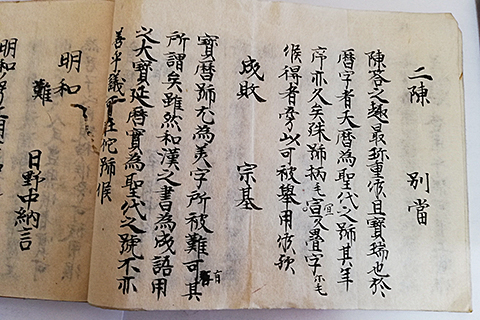 二陳　別當
陳答之趣最珎重候且寶瑞也於
暦字者天暦為聖代之号其年
序亦久矣殊号柄毛宜久畳字亦毛
候得者旁以可被舉用候歟
成敗　宗基
寳暦号尤為美字所被難可其
所謂矣雖然和漢之書為成語用
之大寶延暦寳為聖代之号不亦
善乎議
在他号候
明和
難　日野中納言
明和号